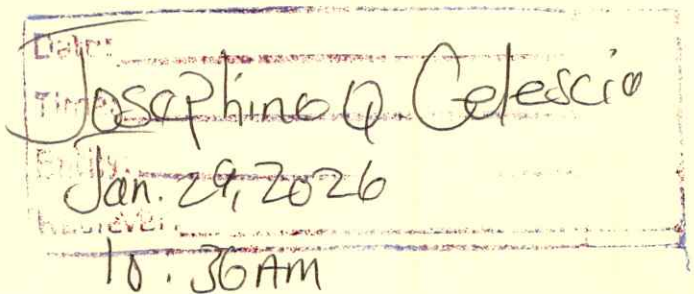 Date:
Josephine Q. Celescio
Time:
Entity:
Jan. 29, 2026
Receiver:
10:36AM